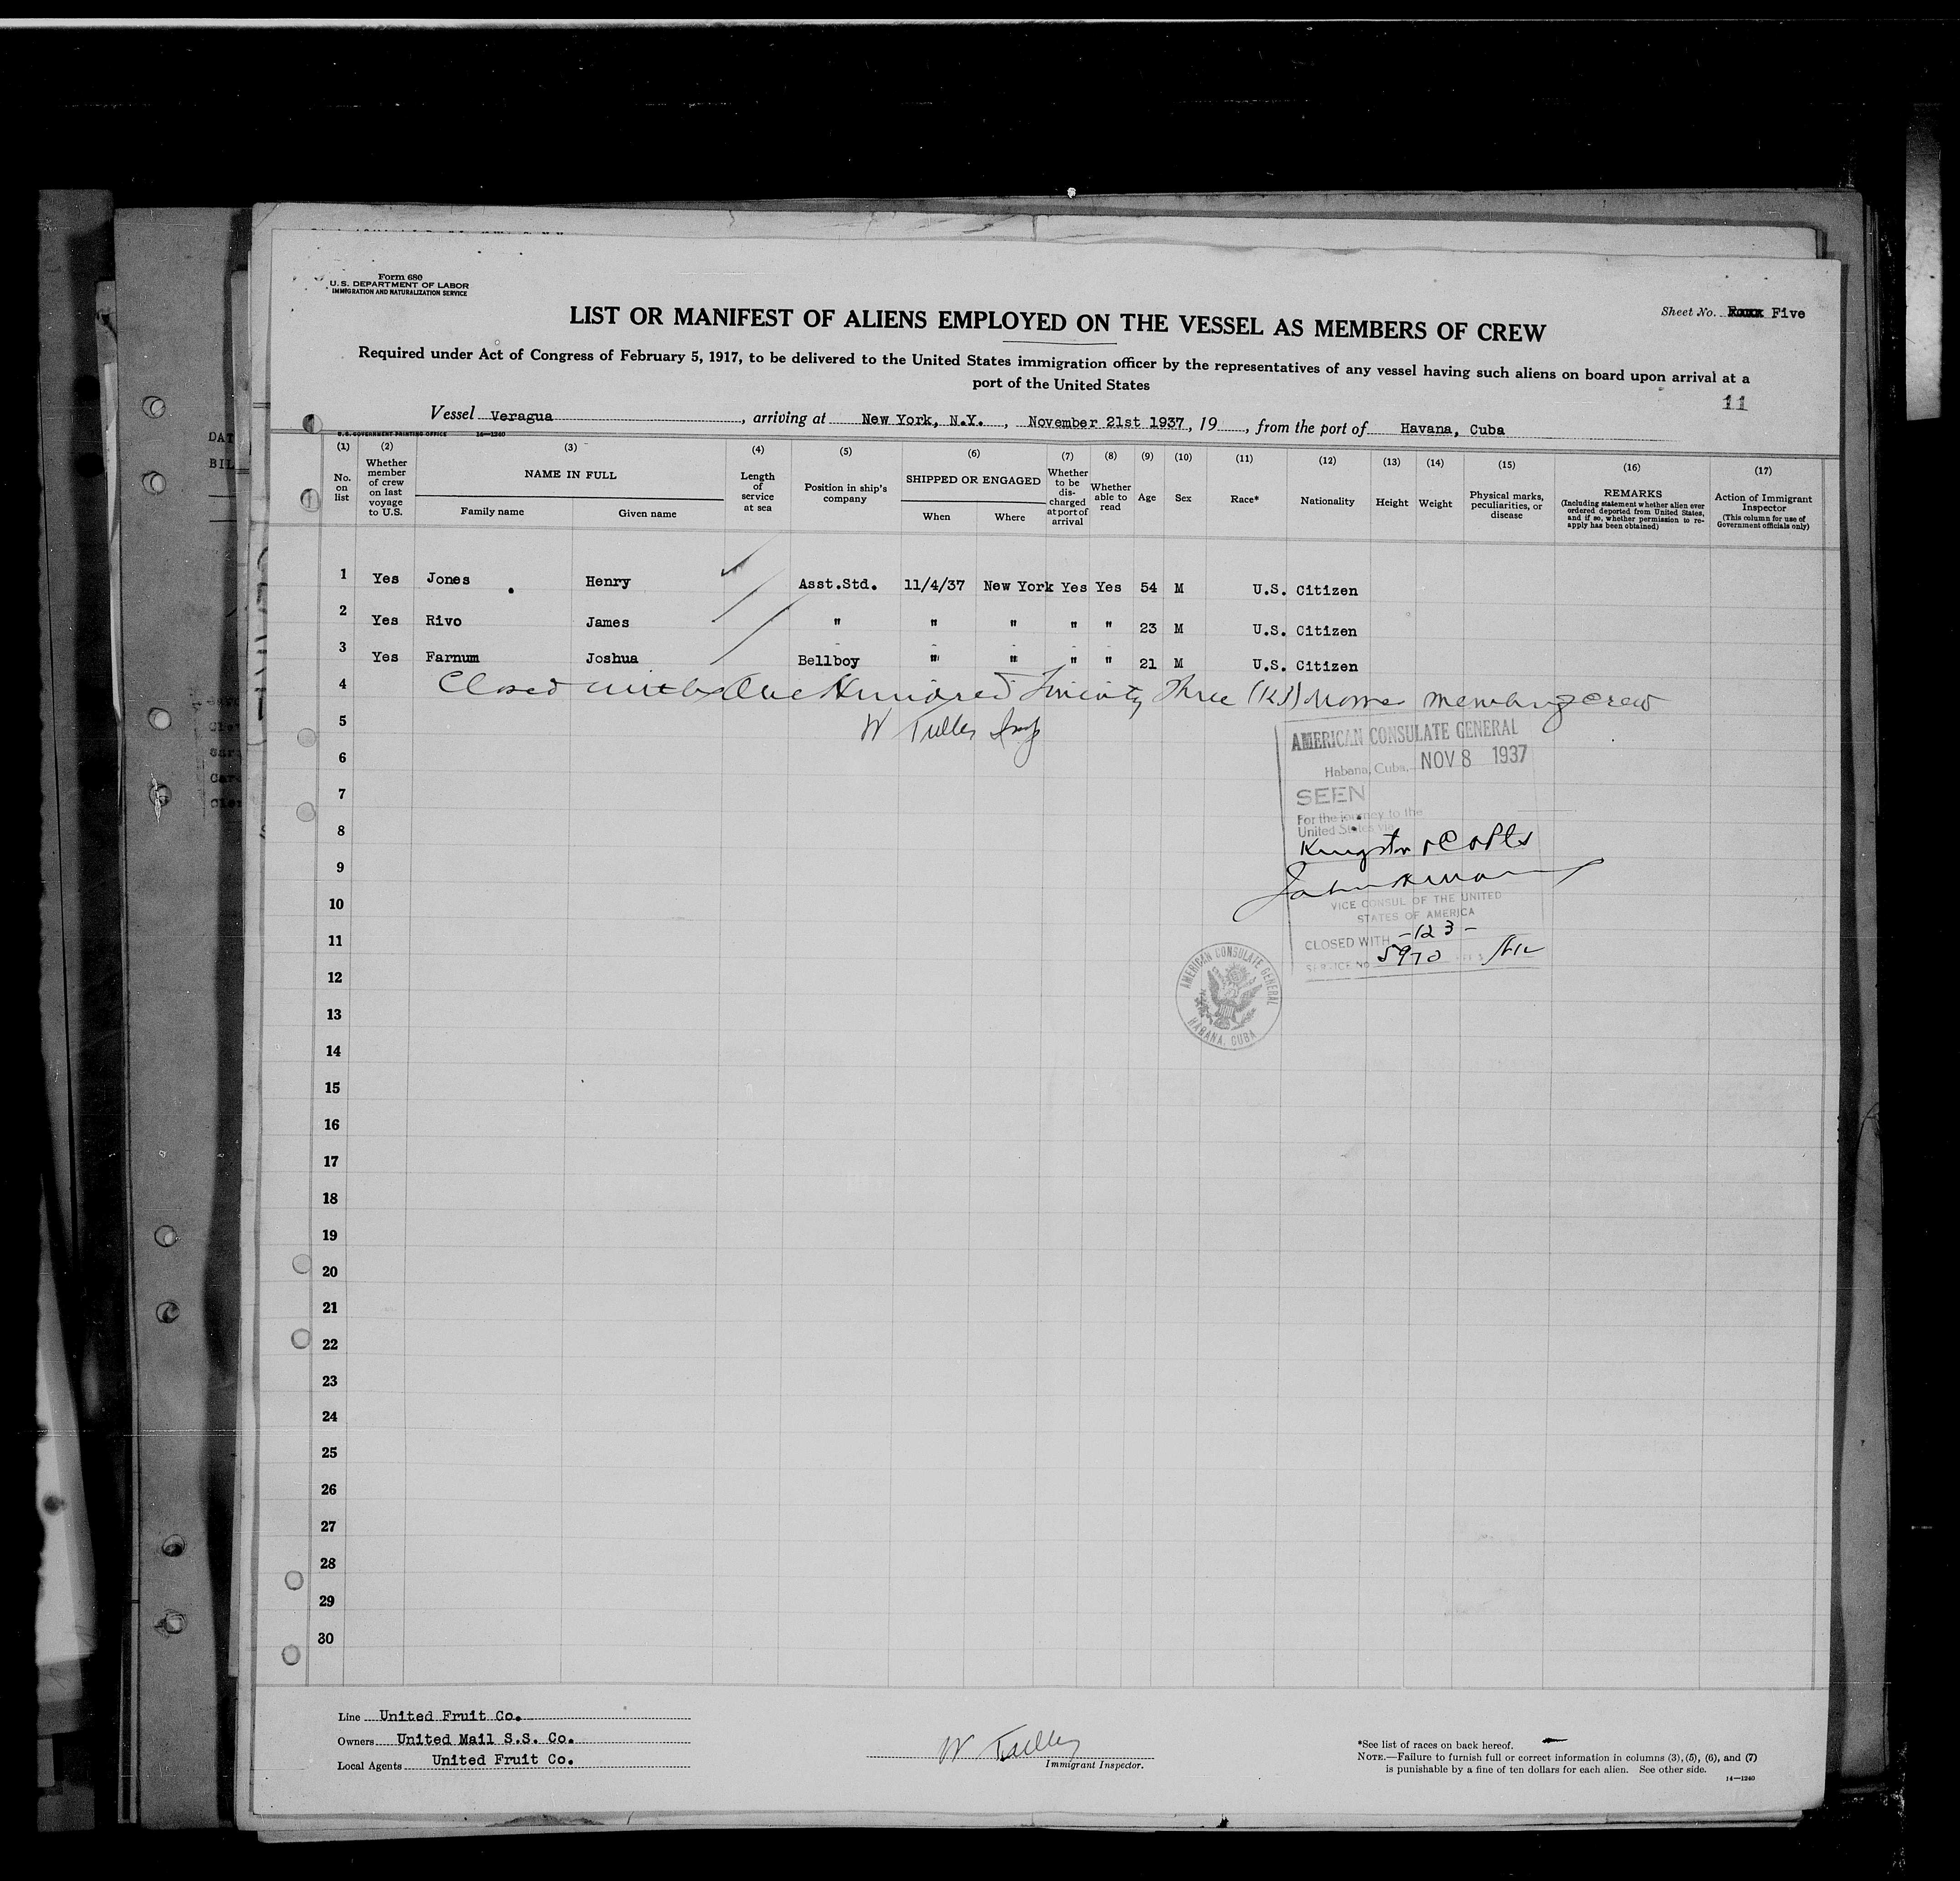 Form 680
U.S. DEPARTMENT OF LABOR
IMMIGRATION AND NATURALIZATION SERVICE
Sheet No. Five
LIST OR MANIFEST OF ALIENS EMPLOYED ON THE VESSEL AS MEMBERS OF CREW
Required under Act of Congress of February 5, 1917, to be delivered to the United States immigration officer by the representatives of any vessel having such aliens on board upon arrival at a
port of the United States
11
Vessel Veragua, arriving at New York, N.Y., November 21st 1937, 19, from the port of Havana, Cuba
U.S. GOVERNMENT PRINTING OFFICE 14—1240
(1) (2) (3) (4) (5) (6) (7) (8) (9) (10) (11) (12) (13) (14) (15) (16) (17)
No. on list
Whether member of crew on last voyage to U.S.
NAME IN FULL
Family name Given name
Length of service at sea
Position in ship's company
SHIPPED OR ENGAGED
When Where
Whether to be discharged at port of arrival
Whether able to read
Age
Sex
Race*
Nationality
Height
Weight
Physical marks, peculiarities, or disease
REMARKS
(Including statement whether alien ever ordered deported from United States, and if so, whether permission to reapply has been obtained)
Action of Immigrant Inspector
(This column for use of Government officials only)
1 Yes Jones Henry Asst.Std. 11/4/37 New York Yes Yes 54 M U.S. Citizen
2 Yes Rivo James " " " " " 23 M U.S. Citizen
3 Yes Farnum Joshua Bellboy " " " " 21 M U.S. Citizen
4 Closed with One Hundred Twenty Three (123) members crew
5 W Tulley Insp
6
7
8
9
10
11
12
13
14
15
16
17
18
19
20
21
22
23
24
25
26
27
28
29
30
AMERICAN CONSULATE GENERAL
Habana, Cuba, NOV 8 1937
SEEN
For the journey to the
United States via
Kingston
VICE CONSUL OF THE UNITED
STATES OF AMERICA
CLOSED WITH -123-
SERVICE NO. 5970
AMERICAN CONSULATE GENERAL
HABANA, CUBA
Line United Fruit Co.
Owners United Mail S.S. Co.
Local Agents United Fruit Co.
W Tulley
Immigrant Inspector.
*See list of races on back hereof.
NOTE.—Failure to furnish full or correct information in columns (3), (5), (6), and (7)
is punishable by a fine of ten dollars for each alien. See other side.
14—1240